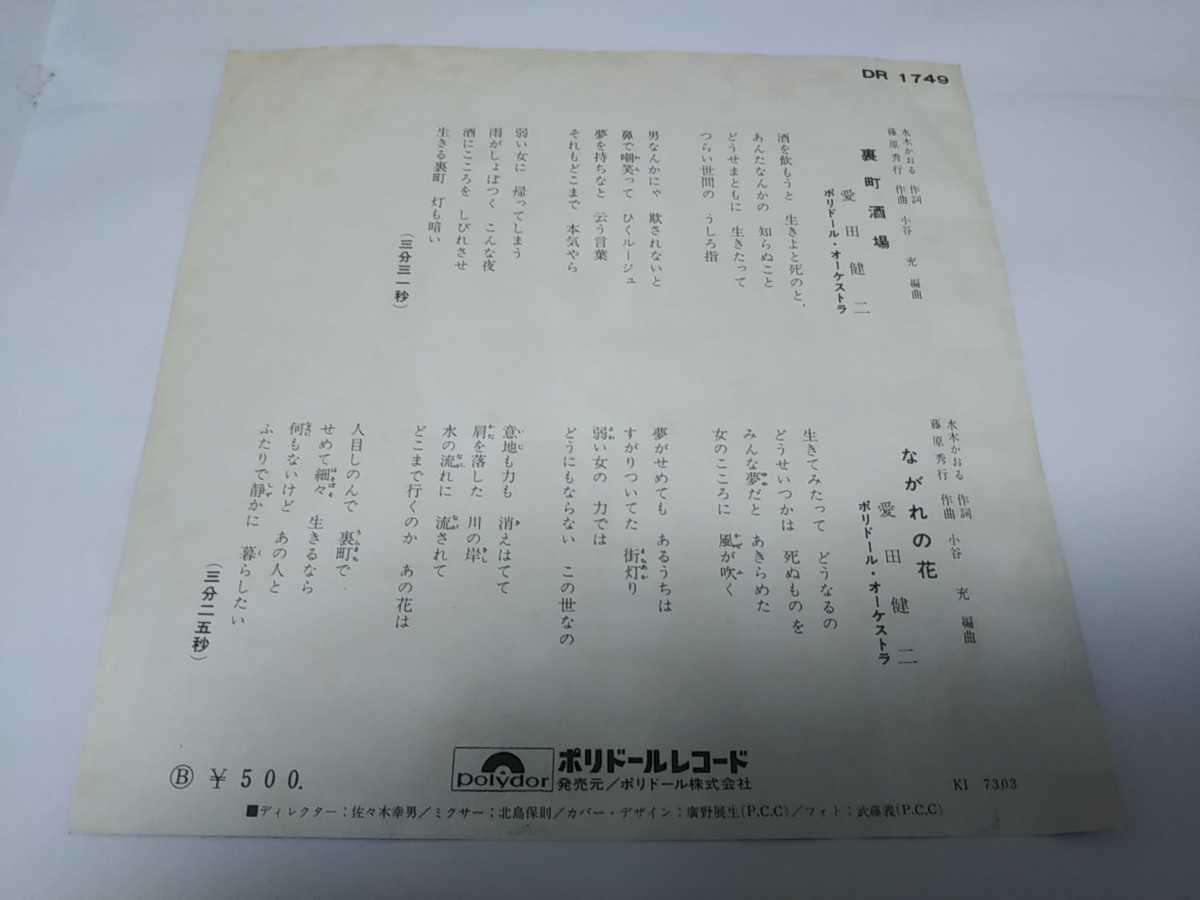 DR 1749
水木かおる 作詞
藤原秀行 作曲
小谷 充 編曲
裏町酒場
愛田健二
ポリドール・オーケストラ
酒を飲もうと 生きよと死のと、
あんたなんかの 知らぬこと
どうせまともに 生きたって
つらい世間の うしろ指
男なんかにゃ 欺されないと
鼻で嘲笑って ひくルージュ
夢を持ちなと 云う言葉
それもどこまで 本気やら
弱い女に 帰ってしまう
雨がしょぼつく こんな夜
酒にこころを しびれさせ
生きる裏町 灯も暗い
(三分三一秒)
水木かおる 作詞
藤原秀行 作曲
小谷 充 編曲
ながれの花
愛田健二
ポリドール・オーケストラ
生きてみたって どうなるの
どうせいつかは 死ぬものを
みんな夢だと あきらめた
女のこころに 風が吹く
夢がせめても あるうちは
すがりついてた 街灯り
弱い女の 力では
どうにもならない この世なの
意地も力も 消えはてて
肩を落した 川の岸
水の流れに 流されて
どこまで行くのか あの花は
人目しのんで 裏町で
せめて細々 生きるなら
何もないけど あの人と
ふたりで静かに 暮らしたい
(三分二五秒)
Ⓑ ¥500.
polydor
ポリドールレコード
発売元/ポリドール株式会社
KI 7303
■ディレクター:佐々木幸男/ミクサー:北島保則/カバー・デザイン:廣野展生(P.C.C)/フォト:武藤義(P.C.C)